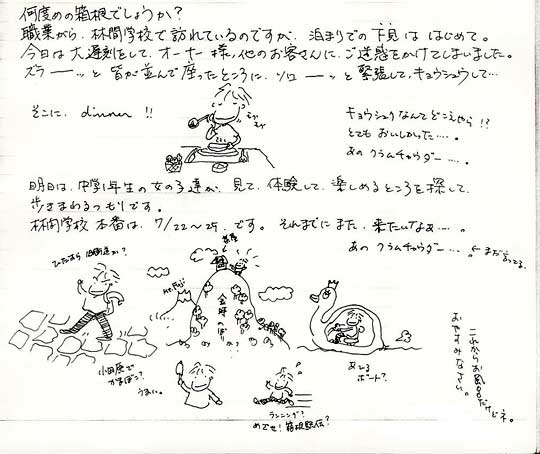 何度めの箱根でしょうか?
職業がら、林間学校で訪れているのですが、泊まりでの下見ははじめて。
今日は大遅刻をして、オーナー様、他のお客さんに、ご迷惑をかけてしまいました。
ズラーーッと皆が並んで座ったところに、ソローーッと緊張して、キョウシュクして…
そこに、dinner!!
キョウシュクなんてどこえやら!?
とてもおいしかった….。
あのクラムチャウダー….。
明日は、中学1年生の女の子達が、見て、体験して、楽しめるところを探して、
歩きまわるつもりです。
林間学校本番は、7/22〜25、です。それまでにまた、来たいなぁ…。
あのクラムチャウダー…。←まだ言ってる。
ひたすら旧街道か?
Mt.Fuji
金時山のぼり
茶屋
小田原でかまぼこ?
うまいに。
ランニング?
めざせ!箱根駅伝?
あひるボート?
これからお風呂だけどネ。
おやすみなさい。